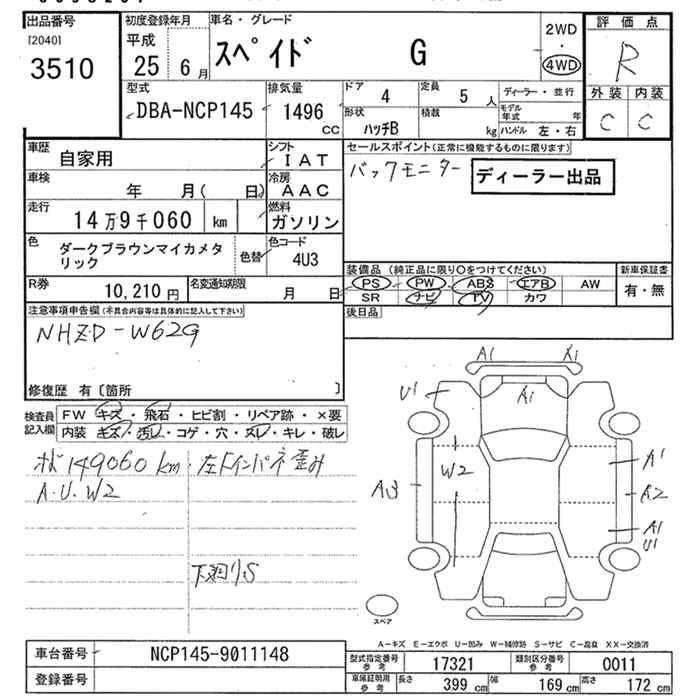 出品番号 初度登録年月 車名・グレード 2WD 評価点
[2040] 平成 スペイド G ・ R
3510 25 6月 4WD
型式 排気量 ドア 4 定員 5人 ディーラー・並行 外装 内装
DBA-NCP145 1496 CC 形状 ハッチB 積載 kg モデル年式 年 C C
ハンドル 左・右
車歴 自家用 シフト IAT セールスポイント(正常に機能するものに限ります)
車検 年 月( 日) 冷房 AAC バックモニター ディーラー出品
走行 14万9千060 km 燃料 ガソリン
色 ダークブラウンマイカメタリック 色替 色コード 4U3
装備品(純正品に限り○をつけてください) 新車保証書
R券 10,210円 名変通知期限 月 日 PS PW ABS エアB AW 有・無
SR ナビ TV カワ
注意事項申告欄(不具合内容等は具体的に記入して下さい) 後日品
NHZD-W62G
修復歴 有〔箇所 〕
検査員記入欄 FW キズ・飛石・ヒビ割・リペア跡・×要
内装 キズ・汚レ・コゲ・穴・スレ・キレ・破レ
149060km 左Fインパネ歪み
A.U.W2
下廻りS
A1 X1
U1 A1
W2 A1
A3 A2
A1
U1
スペア
A―キズ E―エクボ U―凹み W―補修跡 S―サビ C―腐食 XX―交換済
車台番号 NCP145-9011148 型式指定番号 参考 17321 類別区分番号 参考 0011
登録番号 車庫証明用 参考 長さ 399 cm 幅 169 cm 高さ 172 cm